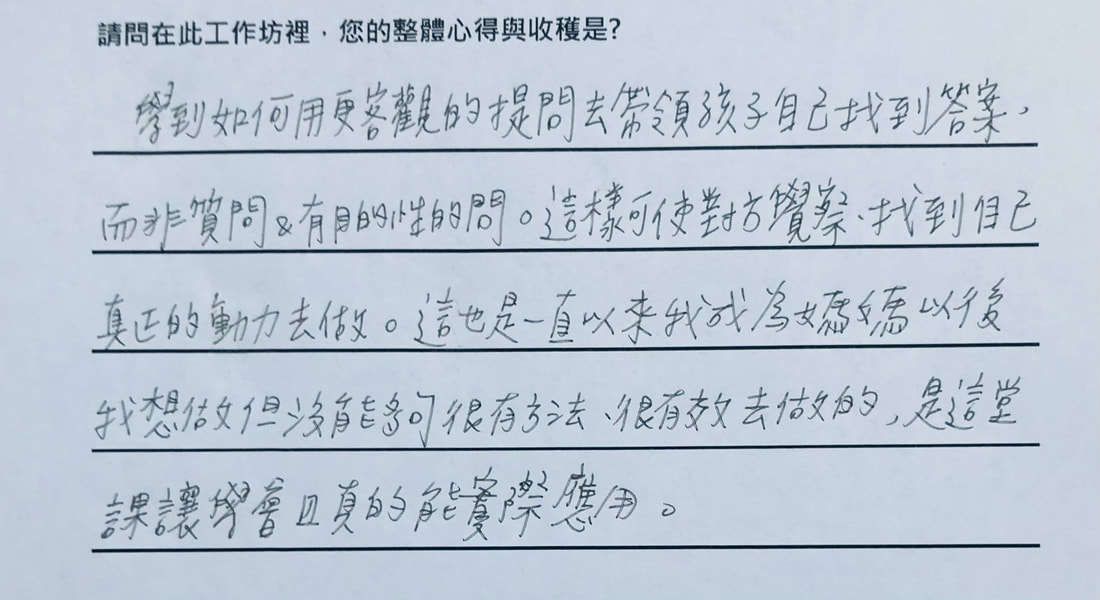 請問在此工作坊裡，您的整體心得與收穫是?
學到如何用更客觀的提問去帶領孩子自己找到答案，
而非質問&有目的性的問。這樣可使對方覺察、找到自己
真正的動力去做。這也是一直以來我成為媽媽以後
我想做但沒能夠很有方法、很有效去做的，是這堂
課讓學會且真的能實際應用。